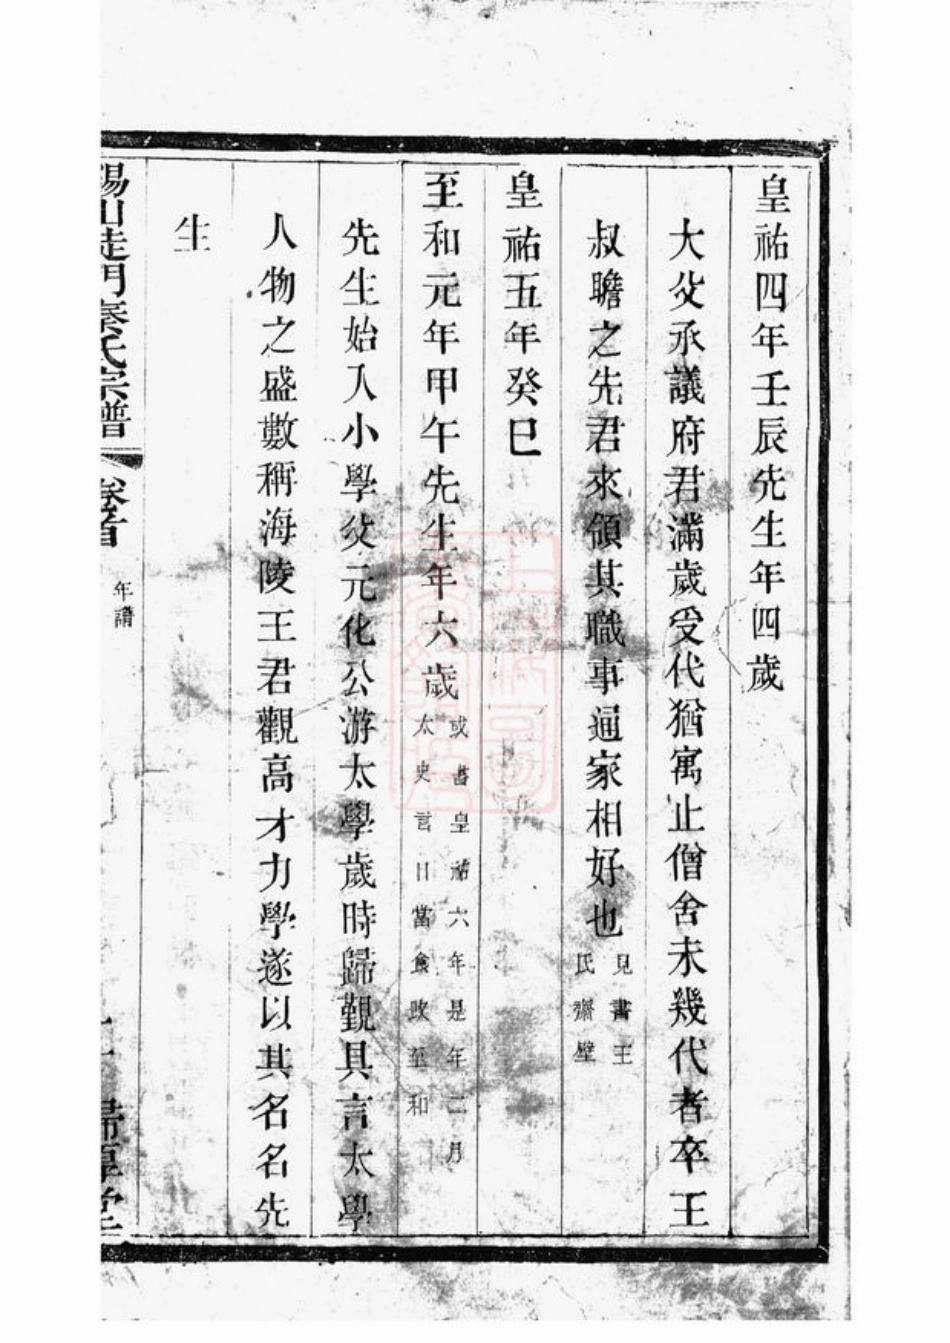 皇祐四年壬辰先生年四歲
大父承議府君滿歲受代猶寓止僧舍未幾代者卒王
叔瞻之先君來領其職事逼家相好也見書王
氏齋壁
皇祐五年癸巳
至和元年甲午先生年六歲或書皇祐六年是年二月
太史言日當食改至和
先生始入小學父元化公游太學歲時歸覲具言太學
人物之盛數稱海陵王君觀高才力學遂以其名名先
生
錫山秦氏宗譜
卷首
年譜
歸厚堂